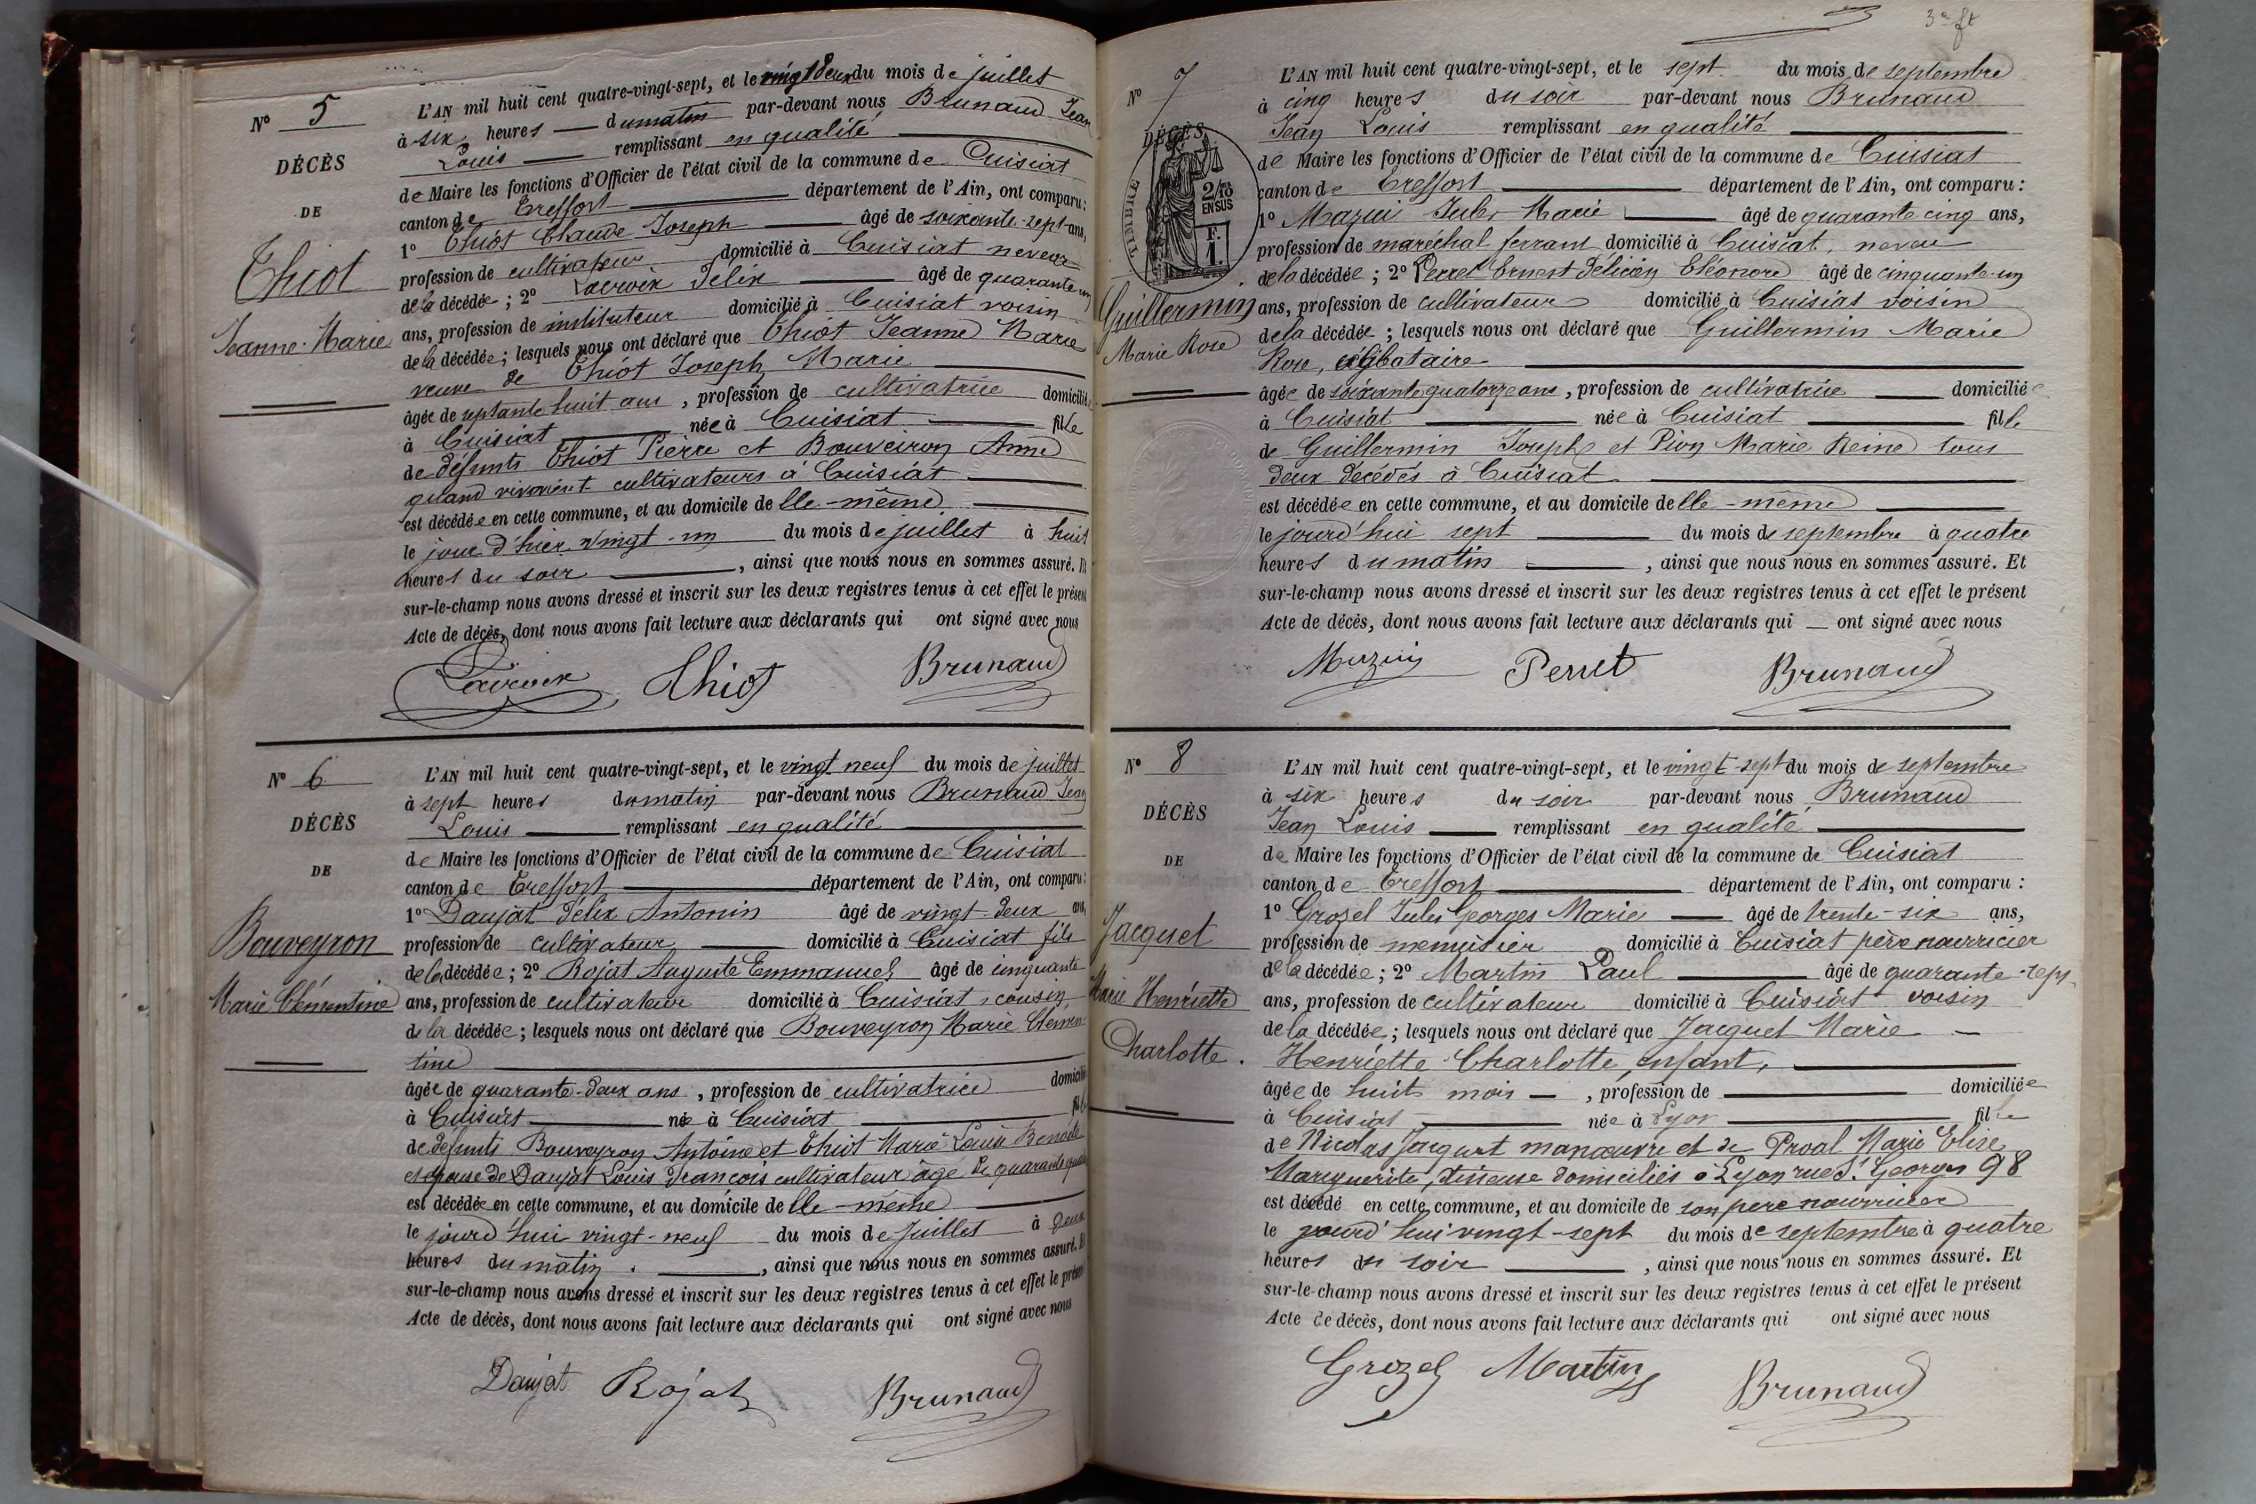 N° 5
DÉCÈS
DE
Thiot
Jeanne-Marie
L'AN mil huit cent quatre-vingt-sept, et le vingt deux du mois de juillet
à six heures du matin par-devant nous Brunaud Jean
Louis remplissant en qualité
de Maire les fonctions d'Officier de l'état civil de la commune de Cuisiat
canton de Treffort département de l'Ain, ont comparu :
1° Thiot Claude Joseph âgé de soixante-sept ans,
profession de cultivateur domicilié à Cuisiat neveu
de la décédée ; 2° Lacroix Félix âgé de quarante un
ans, profession de instituteur domicilié à Cuisiat voisin
de la décédée ; lesquels nous ont déclaré que Thiot Jeanne Marie
veuve de Thiot Joseph Marie
âgée de septante huit ans, profession de cultivatrice domiciliée
à Cuisiat née à Cuisiat fille
de défunts Thiot Pierre et Bouveiron Anne
quand vivaient cultivateurs à Cuisiat
est décédée en cette commune, et au domicile de lle-même
le jour d'hier vingt-un du mois de juillet à huit
heures du soir, ainsi que nous nous en sommes assuré. Et
sur-le-champ nous avons dressé et inscrit sur les deux registres tenus à cet effet le présent
Acte de décès, dont nous avons fait lecture aux déclarants qui ont signé avec nous
Lacroix Thiot Brunaud
N° 6
DÉCÈS
DE
Bouveyron
Marie Clémentine
L'AN mil huit cent quatre-vingt-sept, et le vingt neuf du mois de juillet
à sept heures du matin par-devant nous Brunaud Jean
Louis remplissant en qualité
de Maire les fonctions d'Officier de l'état civil de la commune de Cuisiat
canton de Treffort département de l'Ain, ont comparu :
1° Daujat Félix Antonin âgé de vingt-deux ans,
profession de cultivateur domicilié à Cuisiat fils
de la décédée ; 2° Rojat Auguste Emmanuel âgé de cinquante
ans, profession de cultivateur domicilié à Cuisiat, cousin
de la décédée ; lesquels nous ont déclaré que Bouveyron Marie Clemen-
tine
âgée de quarante-deux ans, profession de cultivatrice domiciliée
à Cuisiat née à Cuisiat fille
de défunts Bouveyron Antoine et Thiot Marie Louise Benoite
et épouse de Daujat Louis François cultivateur âgé de quarante quatre
est décédée en cette commune, et au domicile de lle-même
le jourd'hui vingt-neuf du mois de Juillet à deux
heures du matin, ainsi que nous nous en sommes assuré. Et
sur-le-champ nous avons dressé et inscrit sur les deux registres tenus à cet effet le présent
Acte de décès, dont nous avons fait lecture aux déclarants qui ont signé avec nous
Daujat Rojat Brunaud
3e ft
N° 7
DÉCÈS
TIMBRE
2/10
EN SUS
F.
1.
Guillermin
Marie Rose
L'AN mil huit cent quatre-vingt-sept, et le sept du mois de septembre
à cinq heures du soir par-devant nous Brunaud
Jean Louis remplissant en qualité
de Maire les fonctions d'Officier de l'état civil de la commune de Cuisiat
canton de Treffort département de l'Ain, ont comparu :
1° Mazuis Jules Marie âgé de quarante cinq ans,
profession de maréchal ferrant domicilié à Cuisiat, neveu
de la décédée ; 2° Perret Ernest Félicien Eléonore âgé de cinquante-un
ans, profession de cultivateur domicilié à Cuisiat voisin
de la décédée ; lesquels nous ont déclaré que Guillermin Marie
Rose, célibataire
âgée de soixante quatorze ans, profession de cultivatrice domiciliée
à Cuisiat née à Cuisiat fille
de Guillermin Joseph et Pion Marie Reine tous
deux décédés à Cuisiat
est décédée en cette commune, et au domicile de lle-même
le jourd'hui sept du mois de septembre à quatre
heures du matin, ainsi que nous nous en sommes assuré. Et
sur-le-champ nous avons dressé et inscrit sur les deux registres tenus à cet effet le présent
Acte de décès, dont nous avons fait lecture aux déclarants qui ont signé avec nous
Perret Brunaud
N° 8
DÉCÈS
DE
Jacquet
Marie Henriette
Charlotte.
L'AN mil huit cent quatre-vingt-sept, et le vingt-sept du mois de septembre
à six heures du soir par-devant nous Brunaud
Jean Louis remplissant en qualité
de Maire les fonctions d'Officier de l'état civil de la commune de Cuisiat
canton de Treffort département de l'Ain, ont comparu :
1° Grozel Jules Georges Marie âgé de trente-six ans,
profession de menuisier domicilié à Cuisiat père nourricier
de la décédée ; 2° Martin Paul âgé de quarante-sept
ans, profession de cultivateur domicilié à Cuisiat voisin
de la décédée ; lesquels nous ont déclaré que Jacquet Marie
Henriette Charlotte, enfant,
âgée de huit mois, profession de domiciliée
à Cuisiat née à Lyon fille
de Nicolas Jacquet manœuvre et de Proal Marie Elise
Marguerite, tisseuse domiciliés à Lyon rue St Georges 98
est décédé en cette commune, et au domicile de son père nourricier
le jourd'hui vingt-sept du mois de septembre à quatre
heures du soir, ainsi que nous nous en sommes assuré. Et
sur-le-champ nous avons dressé et inscrit sur les deux registres tenus à cet effet le présent
Acte de décès, dont nous avons fait lecture aux déclarants qui ont signé avec nous
Grozel Martin Brunaud